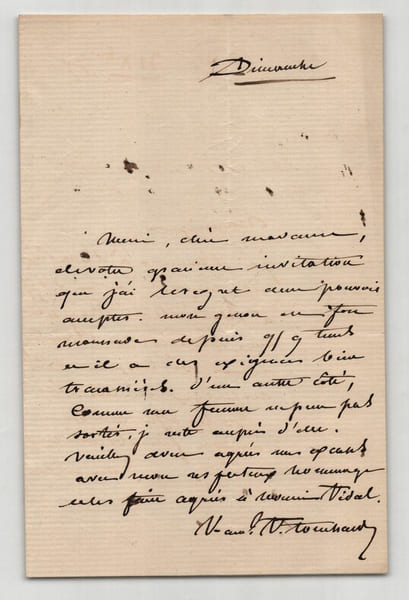 Dimanche
Merci, chère madame,
de votre gracieuse invitation
que j'ai le regret de ne pouvoir
accepter. mon genou est fort
maussade depuis qq temps
et il a des exigences bien
tyranniques. d'un autre côté,
comme ma femme ne peut pas
sortir, je reste auprès d'elle.
veuillez donc agréer mes excuses
avec mon respectueux hommage
et les faire agréer à monsieur Vidal.